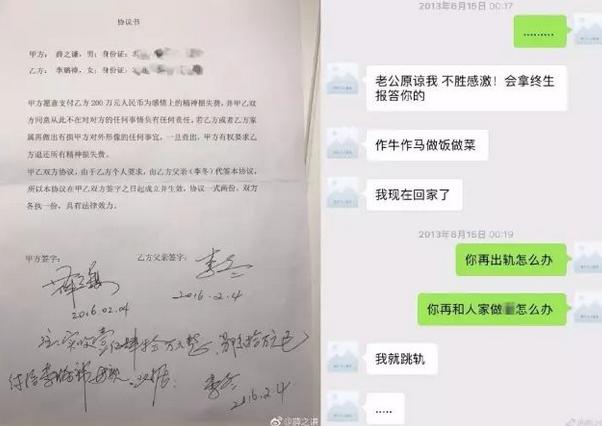 协议书
甲方：薛之谦，男；身份证：
乙方：李 女；身份证：
甲方愿意支付乙方 200 万元人民币为感情上的精神损失费，并甲乙双
方同意从此不在对对方的任何事情负有任何责任，若乙方或者乙方家
属再做出有损甲方对外形像的任何事宜，一旦查出，甲方有权要求乙
方退还所有精神损失费。
甲乙双方协议，由于乙方个人要求，由乙方父亲（李冬）代签本协议，
所以本协议在甲乙双方签字之日起成立并生效，协议一式两份，双方
各执一份，具有法律效力。
甲方签字：
乙方父亲签字：
李冬
2016.02.04
2016.2.4
李冬
2016.2.4
@薛之谦
2013年6月16日 00:17
………
老公原谅我 不胜感激！会拿终生
报答你的
作牛作马做饭做菜
我现在回家了
2013年6月16日 00:19
你再出轨怎么办
你再和人家做 怎么办
我就跳轨
…..